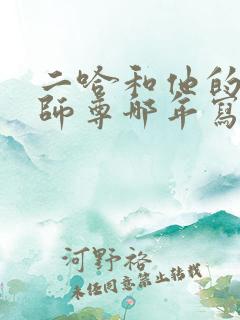 二哈和他的
師尊哪年寫
河野裕
未经同意禁止转载